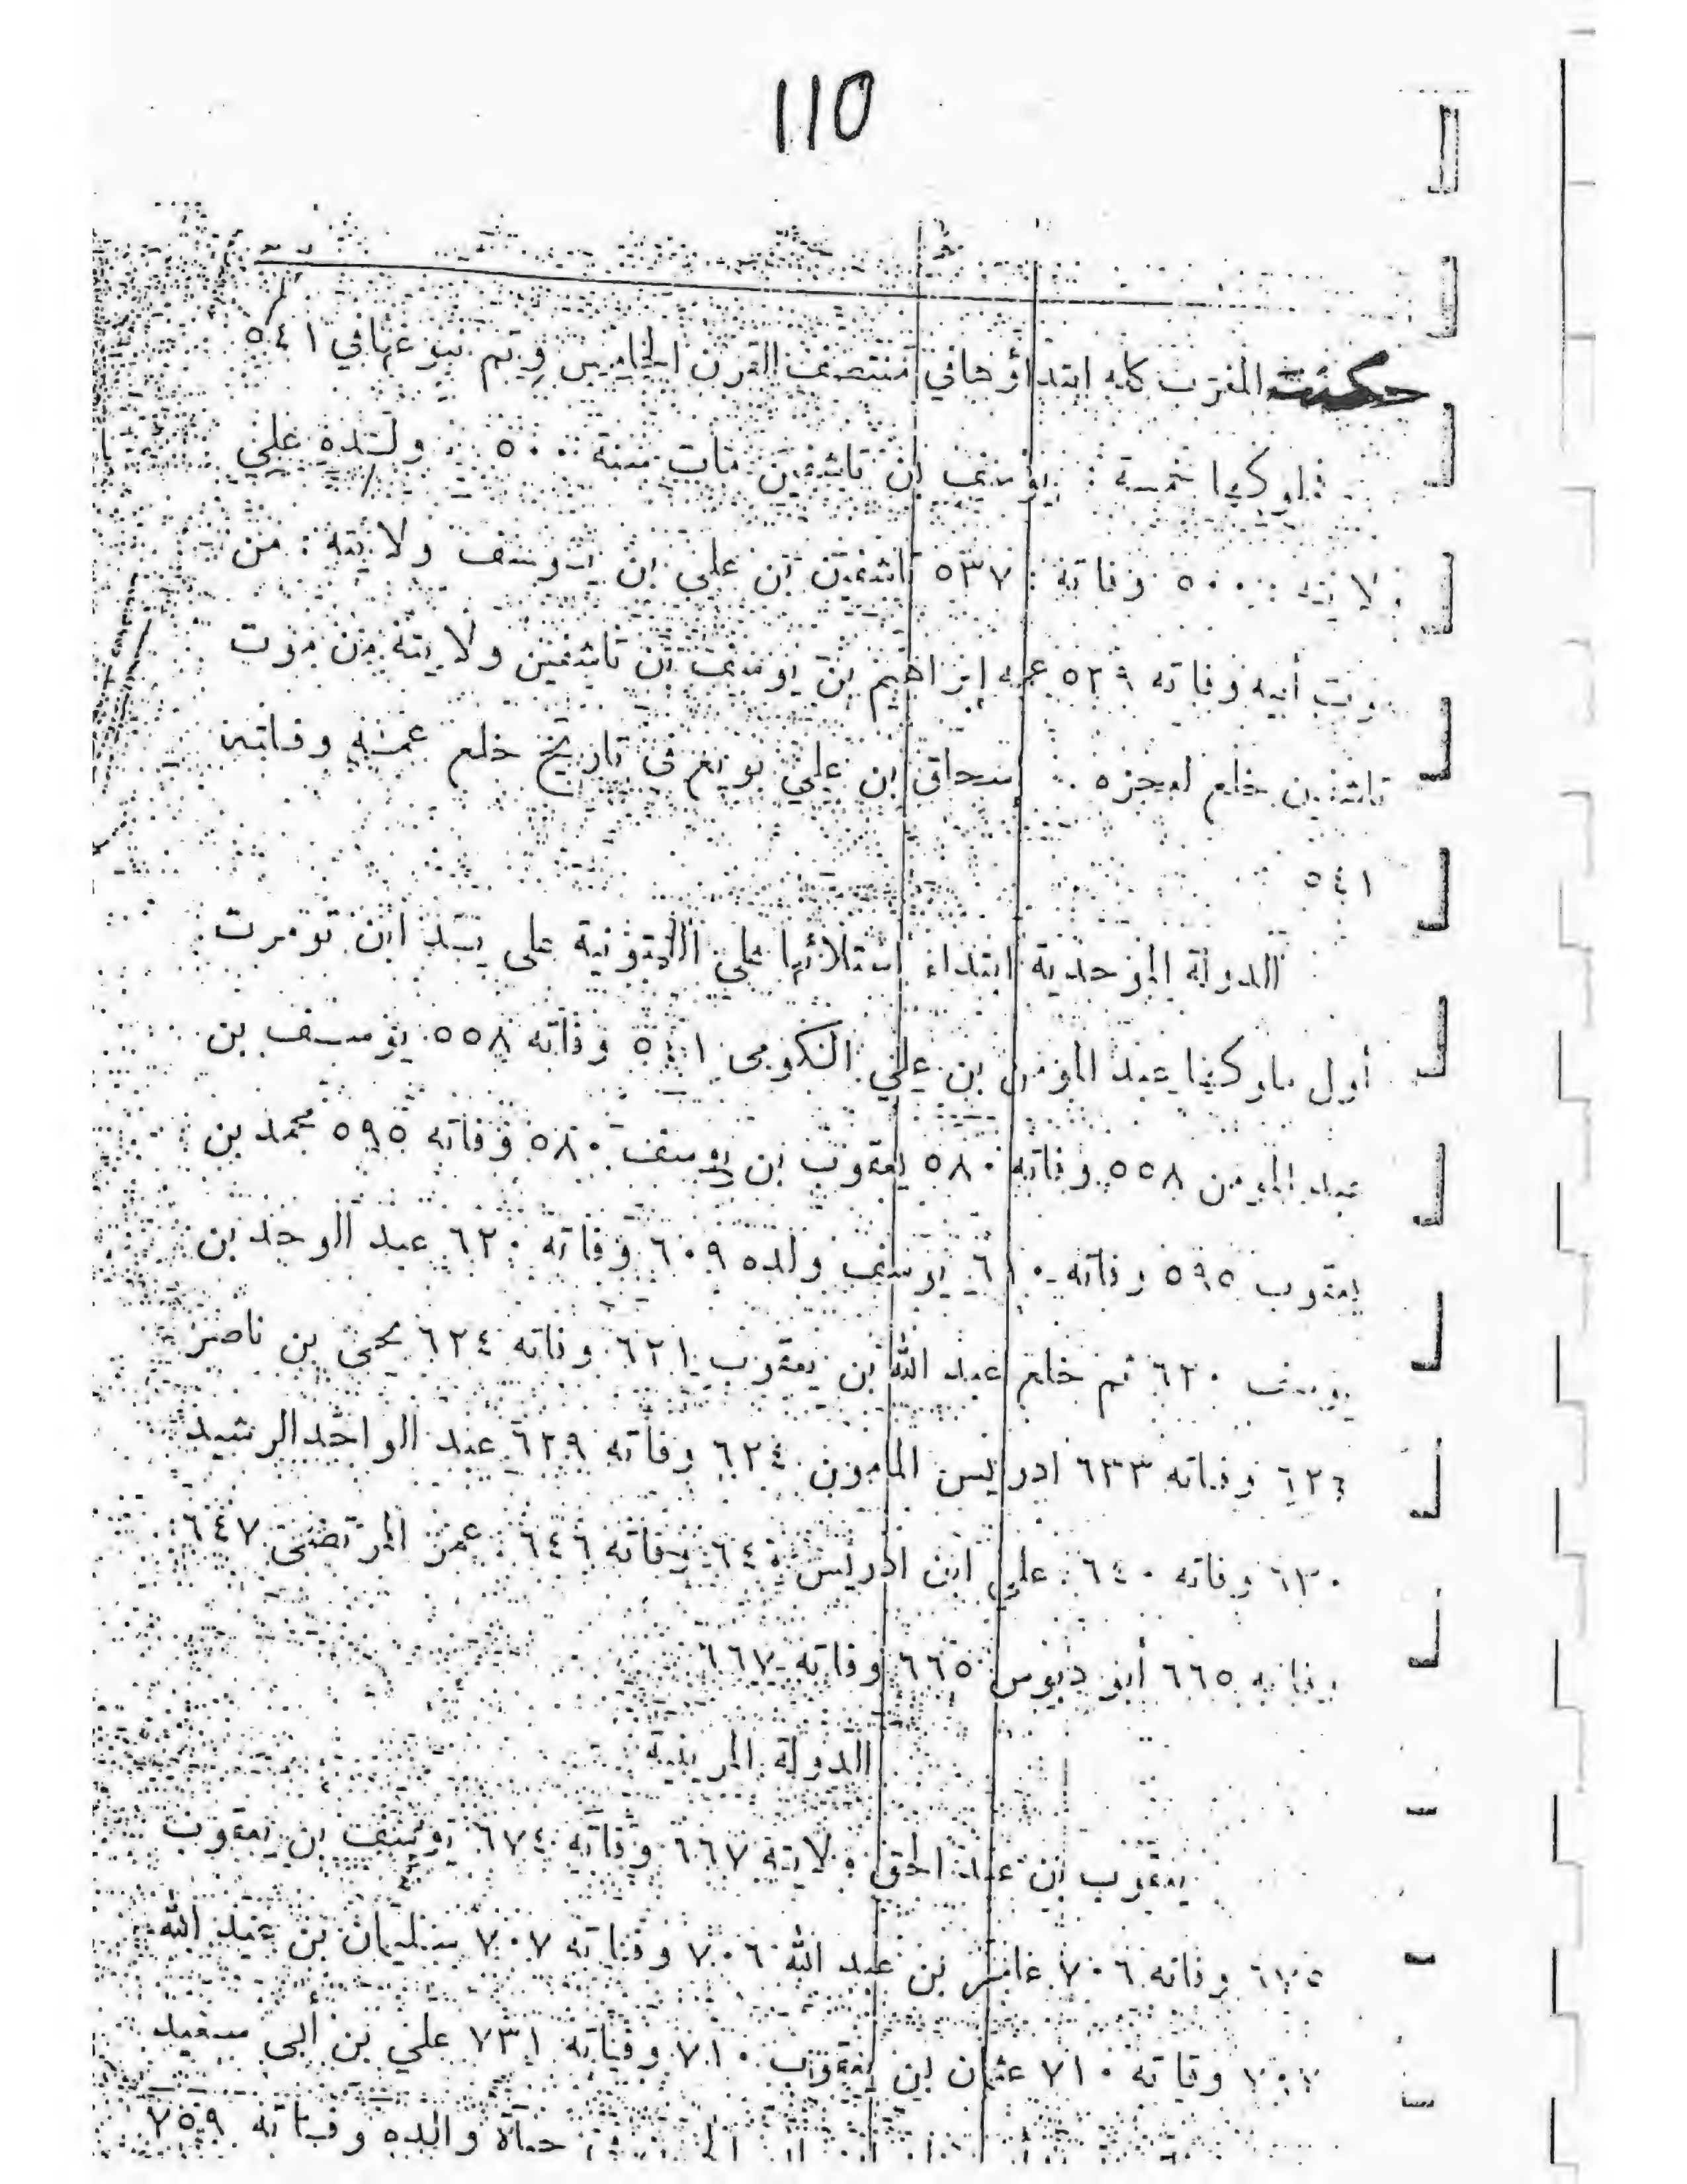 110
حكمت المغرب كله ابتداؤها في منتصف القرن الخامس وتم نبوغها في ٥٤١
ملوكها خمسة : يوسف ابن تاشفين مات سنة ٥٠٠ ولده علي
ولايته ٥٠٠ وفاته : ٥٣٧ تاشفين بن علي بن يوسف ولايته : من
موت أبيه وفاته ٥٣٩ عمه إبراهيم بن يوسف بن تاشفين ولايته من موت
تاشفين خلع لعجزه . إسحاق بن علي بويع في تاريخ خلع عمه وفاته
٥٤١
الدولة الموحدية ابتداء استلائها على اللمتونية على يد ابن تومرت
أول ملوكها عبد المومن بن علي الكومى ٥٤١ وفاته ٥٥٨ يوسف بن
عبد المومن ٥٥٨ وفاته ٥٨٠ يعقوب بن يوسف ٥٨٠ وفاته ٥٩٥ محمد بن
يعقوب ٥٩٥ وفاته ٦١٠ يوسف ولده ٦٠٩ وفاته ٦٢٠ عبد الوحد بن
يوسف ٦٢٠ ثم خلع عبد الله بن يعقوب ٦٢١ وفاته ٦٢٤ يحيى بن ناصر
وفاته ٦٣٣ ادريس المامون ٦٢٤ وفاته ٦٢٩ عبد الواحد الرشيد
٦٣٠ وفاته ٦٤٠ علي ابن ادريس ٦٤٠ وفاته ٦٤٦ عمر المرتضى ٦٤٧
وفاته ٦٦٥ أبو دبوس ٦٦٥ وفاته ٦٦٧
الدولة المرينية
يعقوب بن عبد الحق ولايته ٦٦٧ وفاته ٦٧٤ يوسف بن يعقوب
٦٧٥ وفاته ٧٠٦ عامر بن عبد الله ٧٠٦ وفاته ٧٠٧ سليمان بن عبد الله
٧٠٧ وفاته ٧١٠ عثمان بن يعقوب ٧١٠ وفاته ٧٣١ علي بن أبى سعيد
حياة والده وفاته ٧٥٩